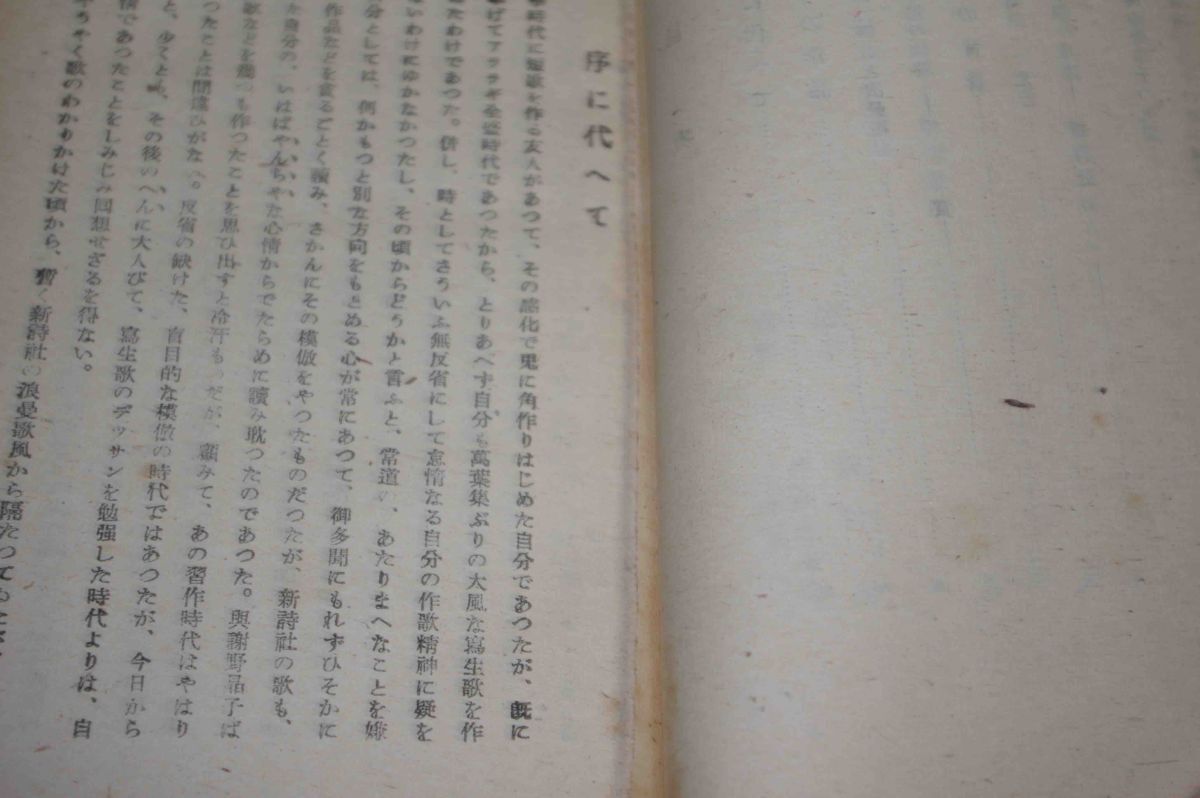 序に代へて
時代に短歌を作る友人があつて、その感化で兎に角作りはじめた自分であつたが、既に
げてアララギ全盛時代であつたから、とりあへず自分も萬葉集ぶりの大風な寫生歌を作
たわけであつた。併し、時としてさういふ無反省にして怠惰なる自分の作歌精神に疑を
いわけにゆかなかつたし、その頃からどうかと言ふと、常道の、あたりまへなことを嫌
分としては、何かもつと別な方向をもとめる心が常にあつて、御多聞にもれずひそかに
作品などを貪るごとく讀み、さかんにその模倣をやつたものだつたが、新詩社の歌も、
た自分の、いはばやんちやな心情からでたらめに讀み耽つたのであつた。與謝野晶子ば
歌などを幾つも作つたことを思ひ出すと冷汗ものだが、顧みて、あの習作時代はやはり
つたことは間違ひがなへ。反省の缺けた、盲目的な模倣の時代ではあつたが、今日から
と、少くとも、その後のへんに大人びて、寫生歌のデッサンを勉强した時代よりは、自
情であつたことをしみじみ回想せざるを得ない。
うやく歌のわかりかけた頃から、暫く新詩社の浪曼歌風から隔たつて